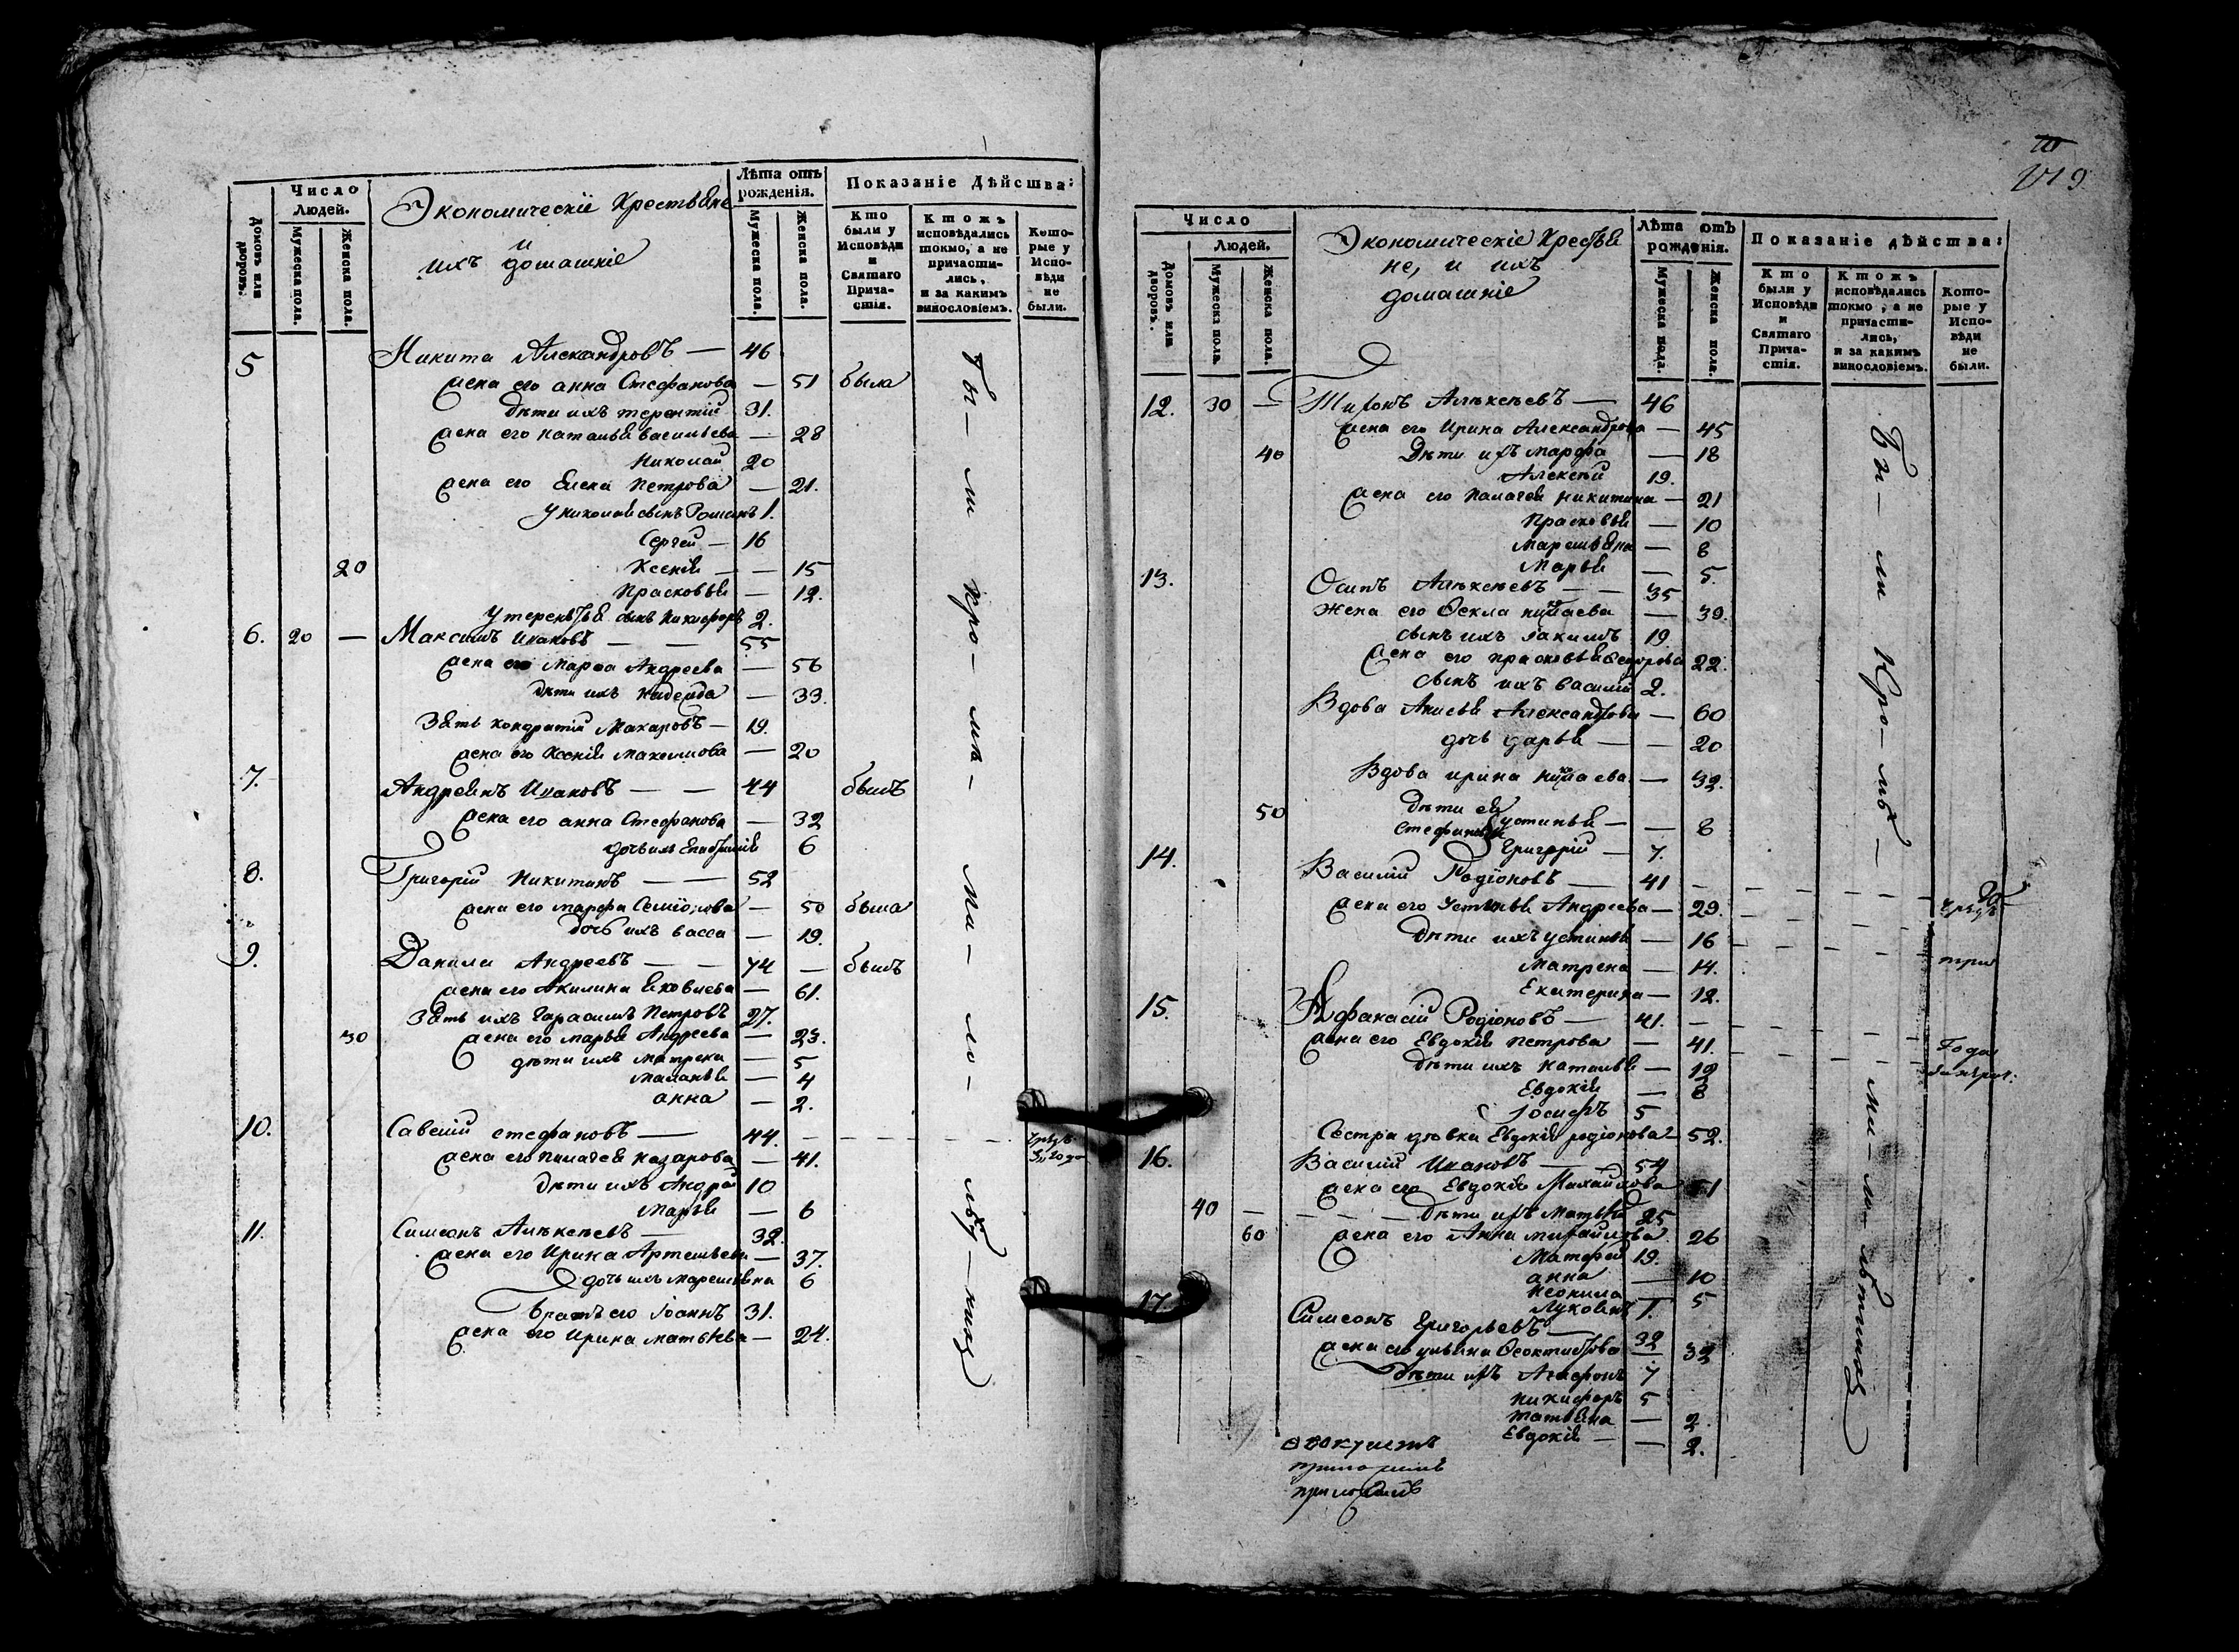 Число
Людей.
Домовъ или дворовъ.
Мужеска пола.
Женска пола.
Экономическіе Крестьяне
и
ихъ домашніе
Лѣта отъ рожденія.
Мужеска пола.
Женска пола.
Показаніе Дѣйства:
Кто были у Исповѣди и Святаго Причастія.
Ктожъ исповѣдались токмо, а не причастились, и за какимъ винословіемъ.
Которые у Исповѣди не были.
5 Никита Александровъ — 46
жена его анна Стефанова — 51 была
дѣти ихъ терентій 31.
жена его наталья васильева — 28
Николай 20
жена его Елена Петрова — 21.
у николая сынъ Романъ 1.
Сергей — 16
20 Ксенія — — 15
Прасковья — 12.
у терентья сынъ Никифоръ 2.
6. 20 — Максимъ Ивановъ — — 55
жена его Марѳа Андреева — 56
дѣти ихъ надежда — 33.
Зять кондратій Макаровъ — 19.
жена его Ксенія максимова — 20
7. Андреянъ Ивановъ — — 44 былъ
жена его анна Стефанова — 32
дочь ихъ 6
8. Григорій Никитинъ — — 52
жена его марфа Семіонова — 50 была
дочь ихъ васса — 19.
9. Данила Андреевъ — — 74 — былъ
жена его Акилина Яковлева — 61.
Зять ихъ Гарасимъ Петровъ 27.
30 жена его марья Андреева — 23.
дѣти ихъ матрена — 5
маланья — 4
анна — 2.
10. Савелій стефановъ — 44. — — — — — — чрезъ
жена его Пелагея назарова — 41.
дѣти ихъ Андрей 10
Марья — 6
11. Симеонъ Алѣксѣевъ — 32.
жена его Ирина Артемьева — 37.
дочь ихъ маремьяна 6
братъ его Іоаннъ 31.
жена его Ирина матвѣева — 24.
Бы — ли кро — мѣ — ма — ло — лѣт — нихъ
19
Число
Людей.
Домовъ или дворовъ.
Мужеска пола.
Женска пола.
Экономическіе Крестья
не, и ихъ
домашніе
Лѣта отъ рожденія.
Мужеска пола.
Женска пола.
Показаніе дѣйства:
Кто были у Исповѣди и Святаго Причастія.
Ктожъ исповѣдались токмо, а не причастились, и за какимъ винословіемъ.
Которые у Исповѣди не были.
12. 30 — Тихонъ Алѣксѣевъ — 46
жена его Ирина Александрова — 45
40 Дѣти ихъ марфа — 18
Алексѣй 19.
жена его Палагея никитина — 21
Прасковья — 10
Маремьяна — 8
Марья — 5.
13. Осипъ Алѣксѣевъ — — 35
Жена его Ѳекла николаева — 39.
сынъ ихъ іакимъ 19
жена его прасковья Ѳедорова 22.
сынъ ихъ василій 2.
Вдова Анисья Александрова — 60
дочь дарья — — 20
Вдова ирина николаева — 32.
50 дѣти ея устинья — — 8
Григорій — 7.
14. Василій Родіоновъ — 41 —
жена его Устинья Андреева — 29.
Дѣти ихъ устинья — 16
Матрена — 14.
Екатерина — 12.
три
15. Афанасій Родіоновъ — 41. —
жена его Евдокія петрова — 41.
дѣти ихъ наталья — 12
Евдокія — 8
Іосифъ 5
Сестра дѣвка Евдокія родіонова 52.
года
16. Василій Ивановъ — 54
жена его Евдокія Михайлова 51
40 — — — — — дѣти ихъ Матвѣй 25
60 жена его Анна михайлова 26
Матфей 19.
анна — 10
неонила — 5
Лукіянъ 1.
17. Симеонъ Григорьевъ — 32
жена его ульяна Ѳеоктистова — 32
дѣти ихъ Агафонъ 7
никифоръ 5
татьяна — 2.
Евдокія — — 2.
Бы — ли Кро — мѣ — ма — ло — лѣтнихъ